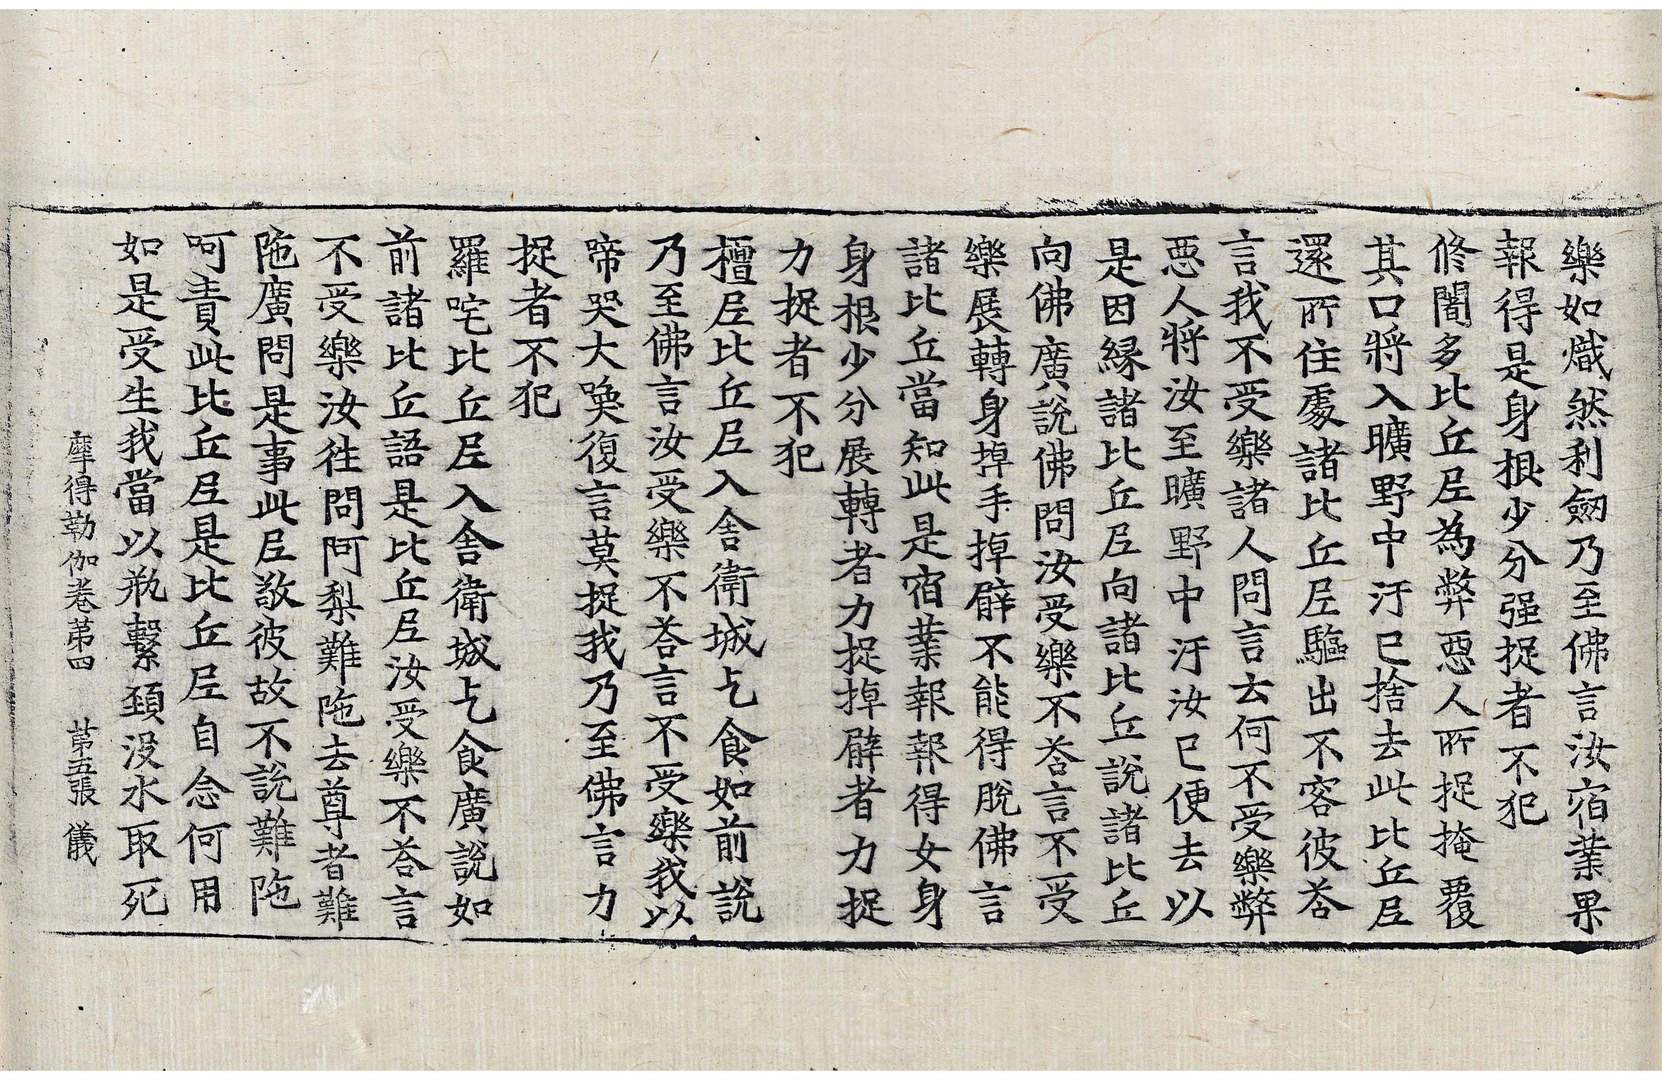 樂如熾然利劒乃至佛言汝宿業果
報得是身根少分强捉者不犯
修闍多比丘尼為弊惡人所捉掩覆
其口將入曠野中汙已捨去此比丘尼
還所住處諸比丘尼驅出不容彼荅
言我不受樂諸人問言云何不受樂弊
惡人將汝至曠野中汙汝已便去以
是因縁諸比丘尼向諸比丘說諸比丘
向佛廣說佛問汝受樂不荅言不受
樂展轉身掉手掉臂不能得脫佛言
諸比丘當知此是宿業報報得女身
身根少分展轉者力捉掉臂者力捉
力捉者不犯
檀尼比丘尼入舍衛城乞食如前說
乃至佛言汝受樂不荅言不受樂我以
啼哭大喚復言莫捉我乃至佛言力
捉者不犯
羅咤比丘尼入舍衛城乞食廣說如
前諸比丘語是比丘尼汝受樂不荅言
不受樂汝往問阿梨難陁去尊者難
陁廣問是事此尼敬彼故不說難陁
呵責此比丘尼是比丘尼自念何用
如是受生我當以瓶繫頚没水取死
摩得勒伽卷第四 第五張 儀